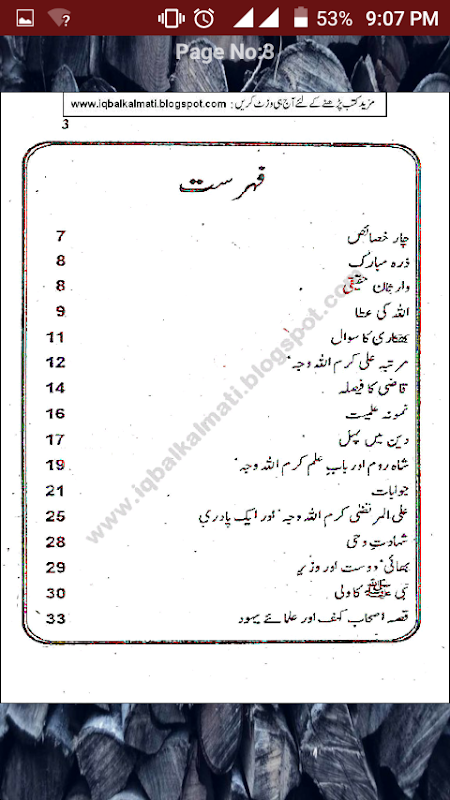 53% 9:07 PM
Page No:8
مزید کتب پڑھنے کے لئے آج ہی وزٹ کریں : www.iqbalkalmati.blogspot.com
3
فہرست
چار خصائص 7
ذرہ مبارک 8
وارثان حقیقی 8
اللہ کی عطا 9
بھکاری کا سوال 11
مرتبہ علی کرم اللہ وجہہ 12
قاضی کا فیصلہ 14
نمونہ علمیت 16
دین میں پہل 17
شاہ روم اور باب علم کرم اللہ وجہہ 19
جوابات 21
علی المرتضٰی کرم اللہ وجہہ اور ایک پادری 25
شہادتِ وحی 28
بھائی، دوست اور وزیر 29
نبی ﷺ کا ولی 30
قصہ اصحاب کہف اور علمائے یہود 33
www.iqbalkalmati.blogspot.com